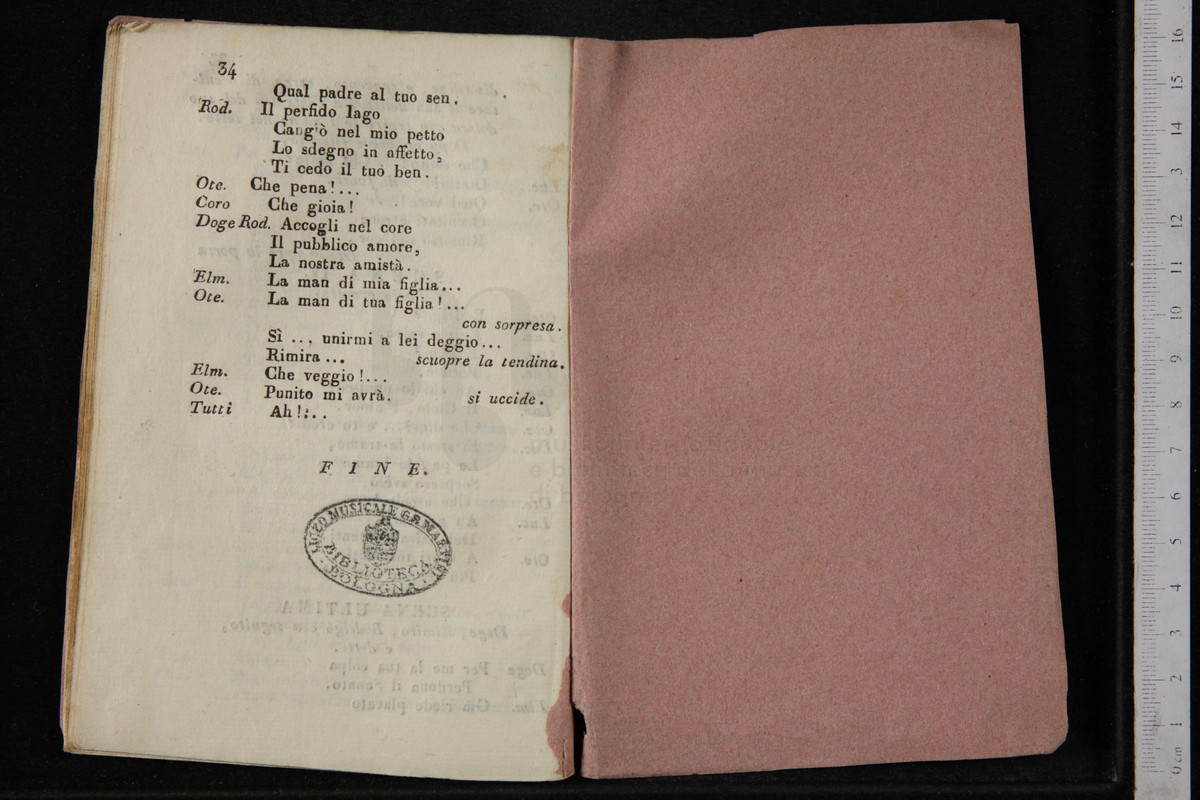 34
Qual padre al tuo sen.
Rod. Il perfido Iago
Cangiò nel mio petto
Lo sdegno in affetto,
Ti cedo il tuo ben.
Ote. Che pena!...
Coro Che gioia!
Doge Rod. Accogli nel core
Il pubblico amore,
La nostra amistà.
Elm. La man di mia figlia...
Ote. La man di tua figlia!...
con sorpresa.
Sì ... unirmi a lei deggio...
Rimira ... scuopre la tendina.
Elm. Che veggio!...
Ote. Punito mi avrà. si uccide.
Tutti Ah!...
FINE.
LICEO MUSICALE G.B. MARTINI
BIBLIOTECA
BOLOGNA
0 cm 1 2 3 4 5 6 7 8 9 10 11 12 13 14 15 16